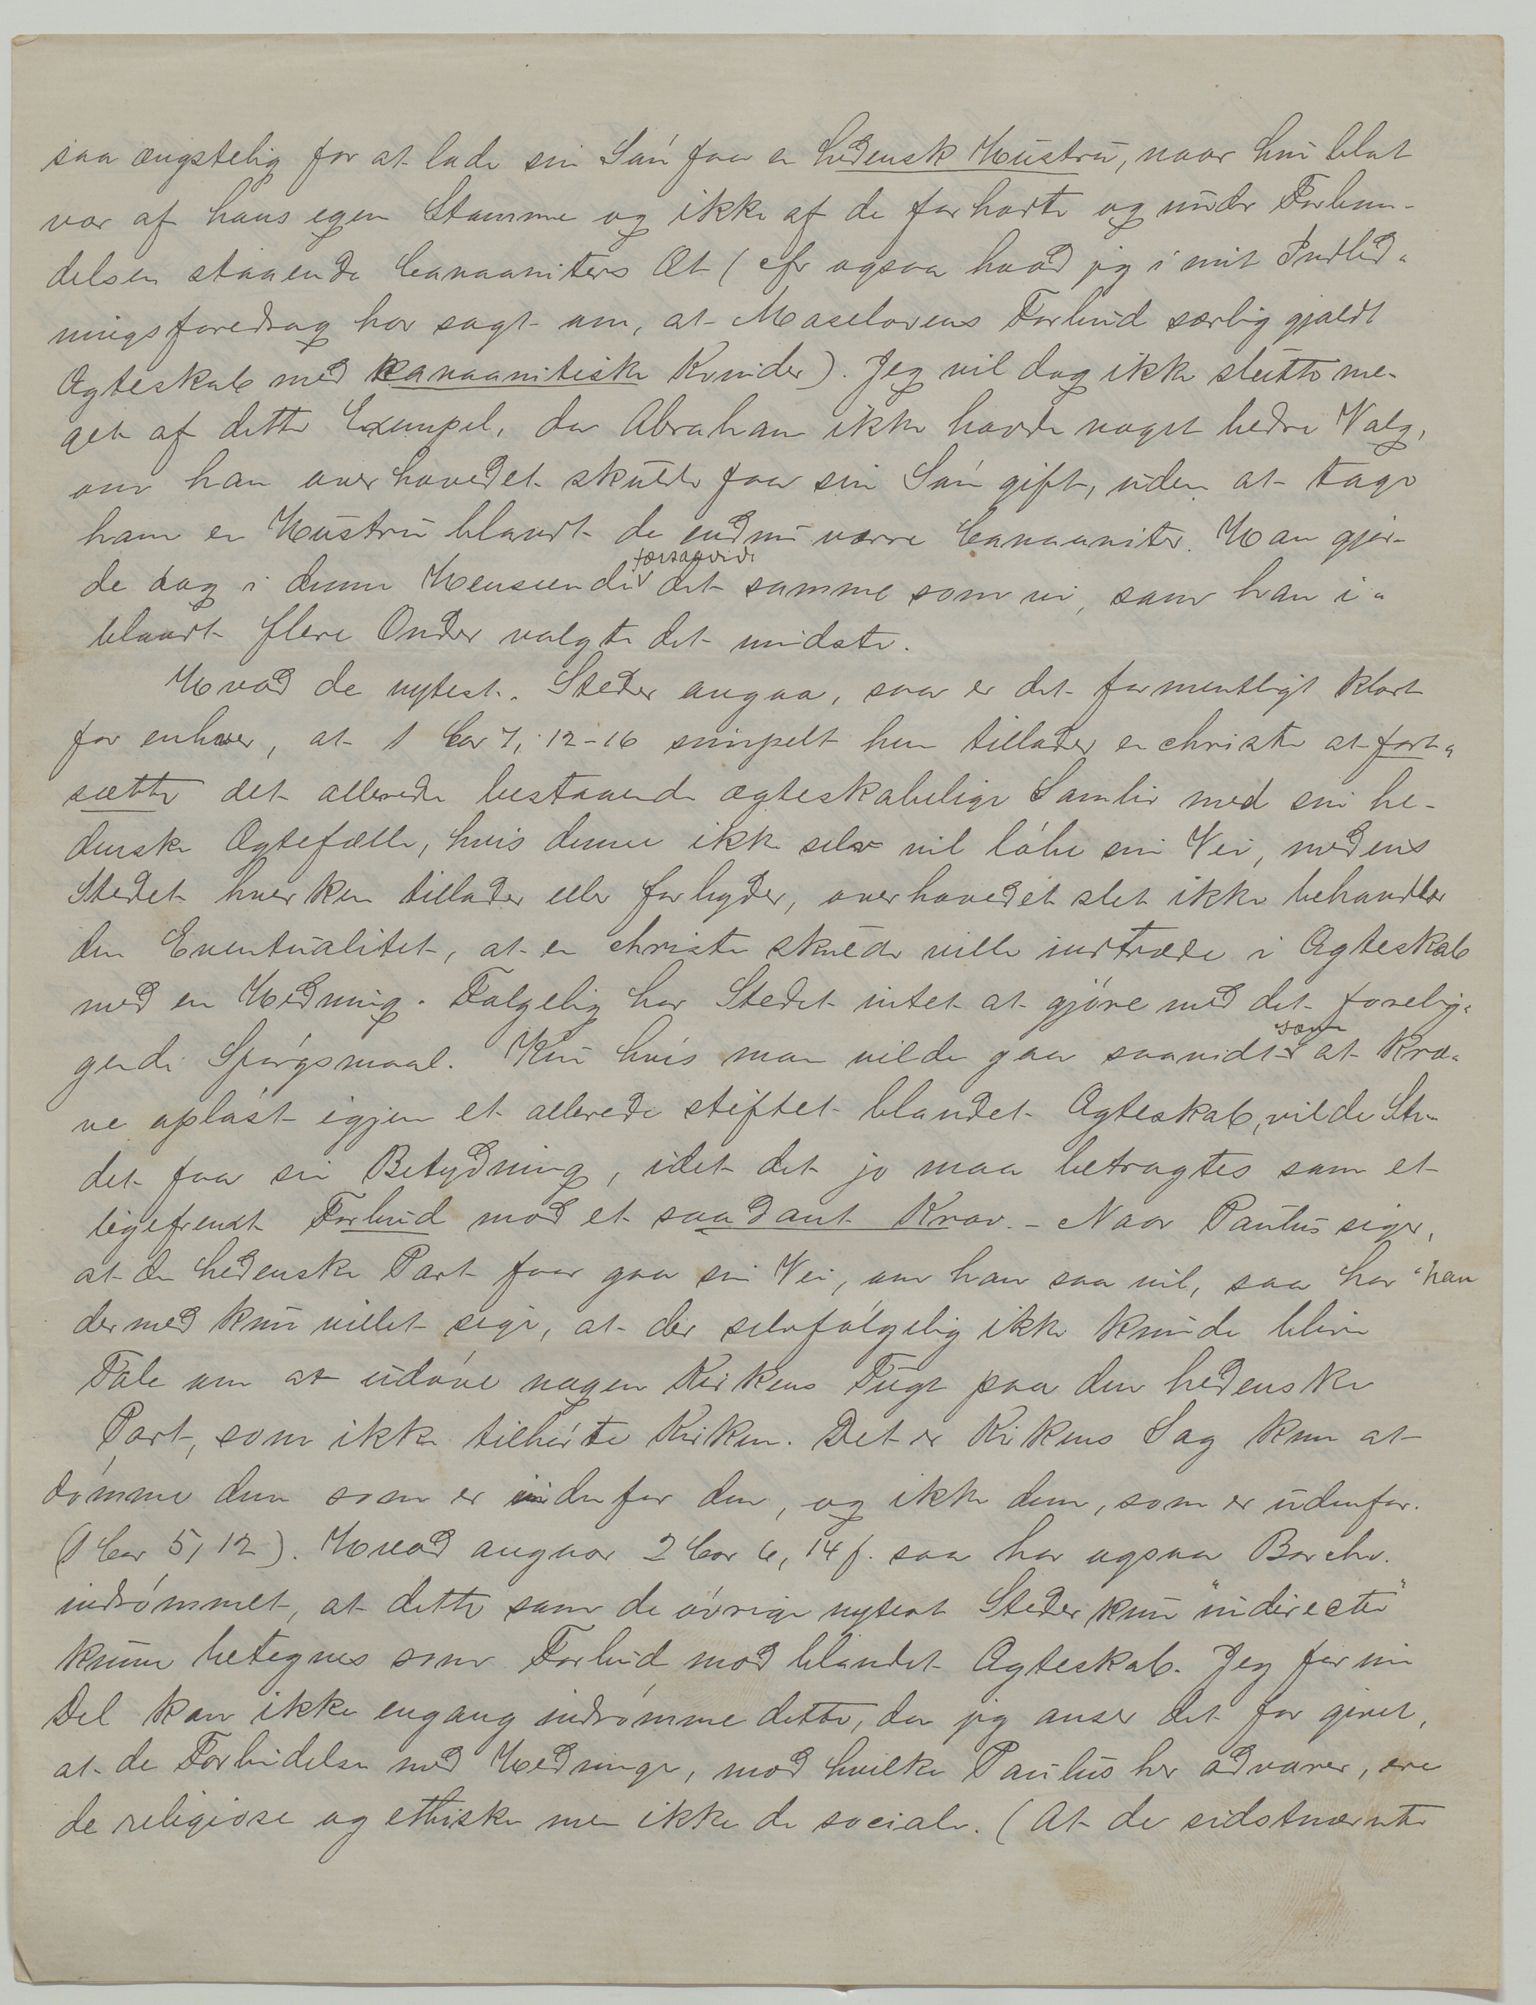 saa ængstelig for at lade sin Søn faa en hedensk Hustru, naar hun blot
var af hans egen Stamme og ikke af de forhadte og under Forban-
delsen staaende Canaaniters Æt (cfr ogsaa hvad jeg i mit Indled-
ningsforedrag har sagt om, at Moselovens Forbud særlig gjaldt
Ægteskab med kanaanitiske Kvinder). Jeg vil dog ikke slutte me-
get af dette Exempel, da Abraham ikke havde noget bedre Valg,
om han overhovedet skulde faa sin Søn gift, uden at tage
ham en Hustru blandt de endnu værre Canaaniter. Han gjor-
de dog i denne Henseende forsaavidt det samme som vi, som han i-
blandt flere Onder valgte det mindste.
Hvad de nytest. Steder angaa, saa er det formentligt klart
for enhver, at 1 Cor 7, 12-16 simpelt hen tillader en christen at fort-
sætte det allerede bestaaende ægteskabelige Samliv med sin he-
denske Ægtefælle, hvis denne ikke selv vil løbe sin Vei, medens
Stedet hverken tillader eller forbyder, overhovedet slet ikke behandler
den Eventualitet, at en christen skulde ville indtræde i Ægteskab
med en Hedning. Følgelig har Stedet intet at gjøre med det forelig-
gende Spørgsmaal. Kun hvis man vilde gaa saavidt som at kræ-
ve opløst igjen et allerede stiftet blandet Ægteskab, vilde Ste-
det faa sin Betydning, idet det jo maa betragtes som et
ligefremt Forbud mod et saadant Krav. – Naar Paulus siger,
at den hedenske Part faar gaa sin Vei, om han saa vil, saa har han
dermed kun villet sige, at der selvfølgelig ikke kunde blive
Tale om at udøve nogen Kirkens Tugt paa den hedenske
Part, som ikke tilhørte Kirken. Det er Kirkens Sag kun at
dømme dem som er indenfor den, og ikke dem, som er udenfor.
(1 Cor 5, 12). Hvad angaar 2 Cor 6, 14 f. saa har ogsaa Borchr.
indrømmet, at dette som de øvrige nytest Steder kun "indirecte"
kunne betegnes som Forbud mod blandet Ægteskab. Jeg for min
Del kan ikke engang indrømme dette, da jeg anser det for givet,
at de Forbindelser med Hedninge, mod hvilke Paulus her advarer, ere
de religiøse og ethiske men ikke de sociale. (At de sidstnævnte